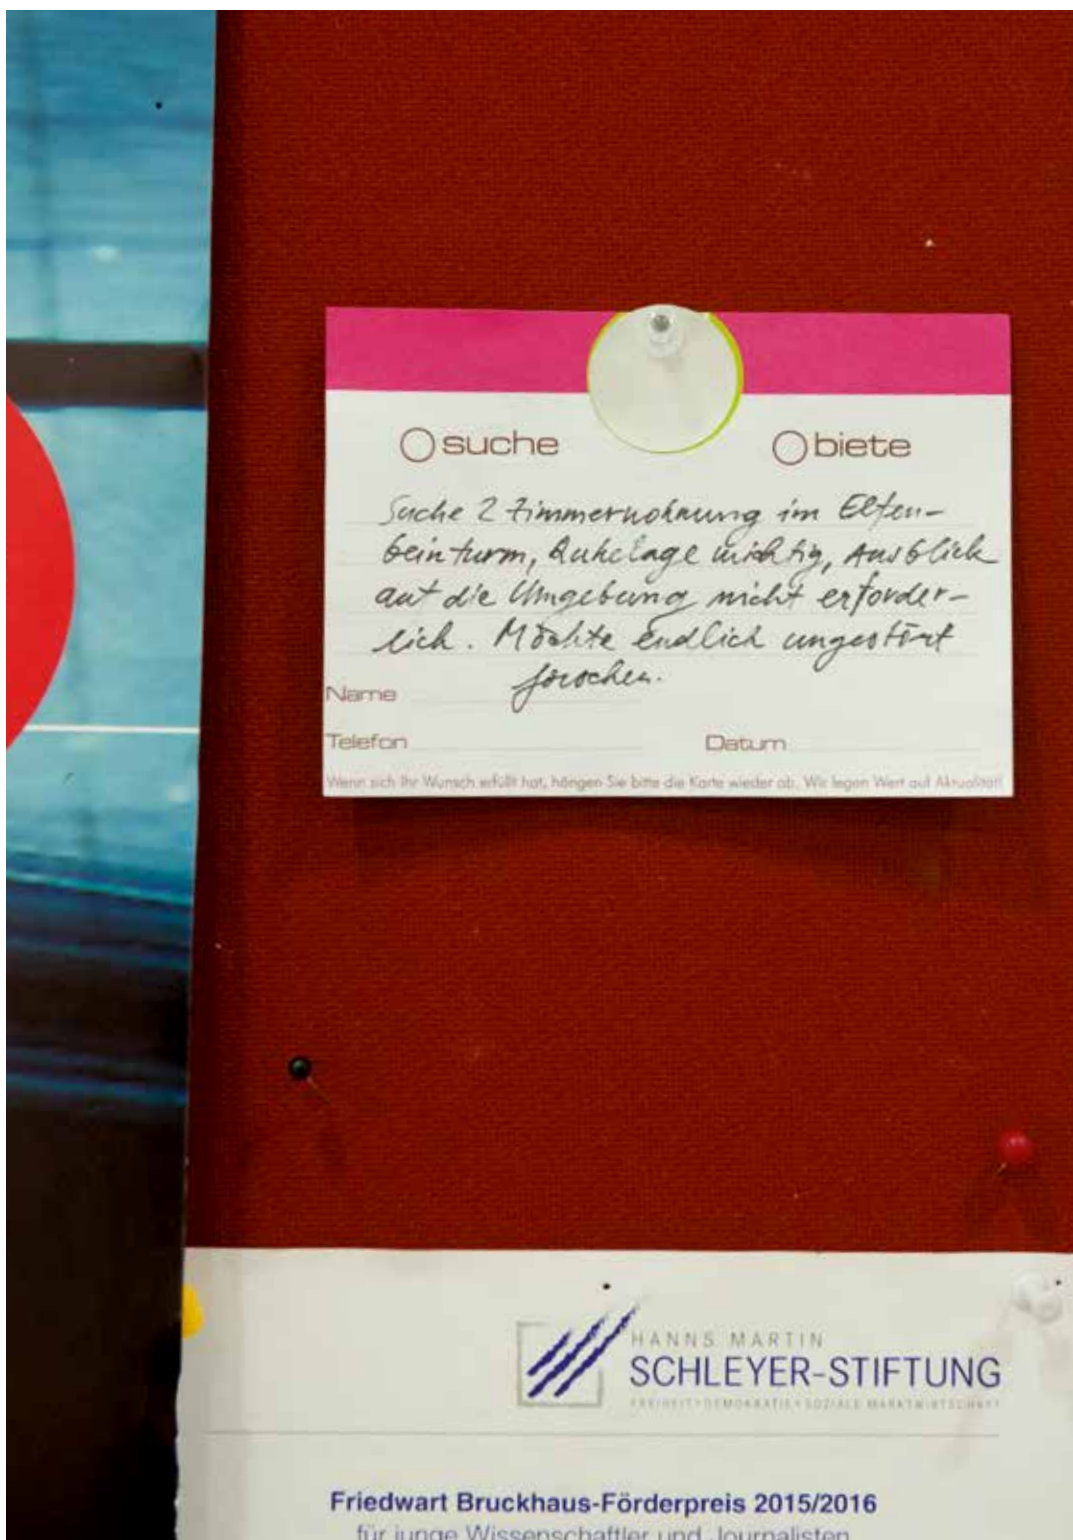 suche
biete
Suche 2 Zimmerwohnung im Elfen-
beinturm, Ruhelage wichtig, Ausblick
auf die Umgebung nicht erforder-
lich. Möchte endlich ungestört
forschen.
Name
Telefon
Datum
Wenn sich Ihr Wunsch erfüllt hat, hängen Sie bitte die Karte wieder ab. Wir legen Wert auf Aktualität!
HANNS MARTIN
SCHLEYER-STIFTUNG
FREIHEIT • DEMOKRATIE • SOZIALE MARKTWIRTSCHAFT
Friedwart Bruckhaus-Förderpreis 2015/2016
für junge Wissenschaftler und Journalisten